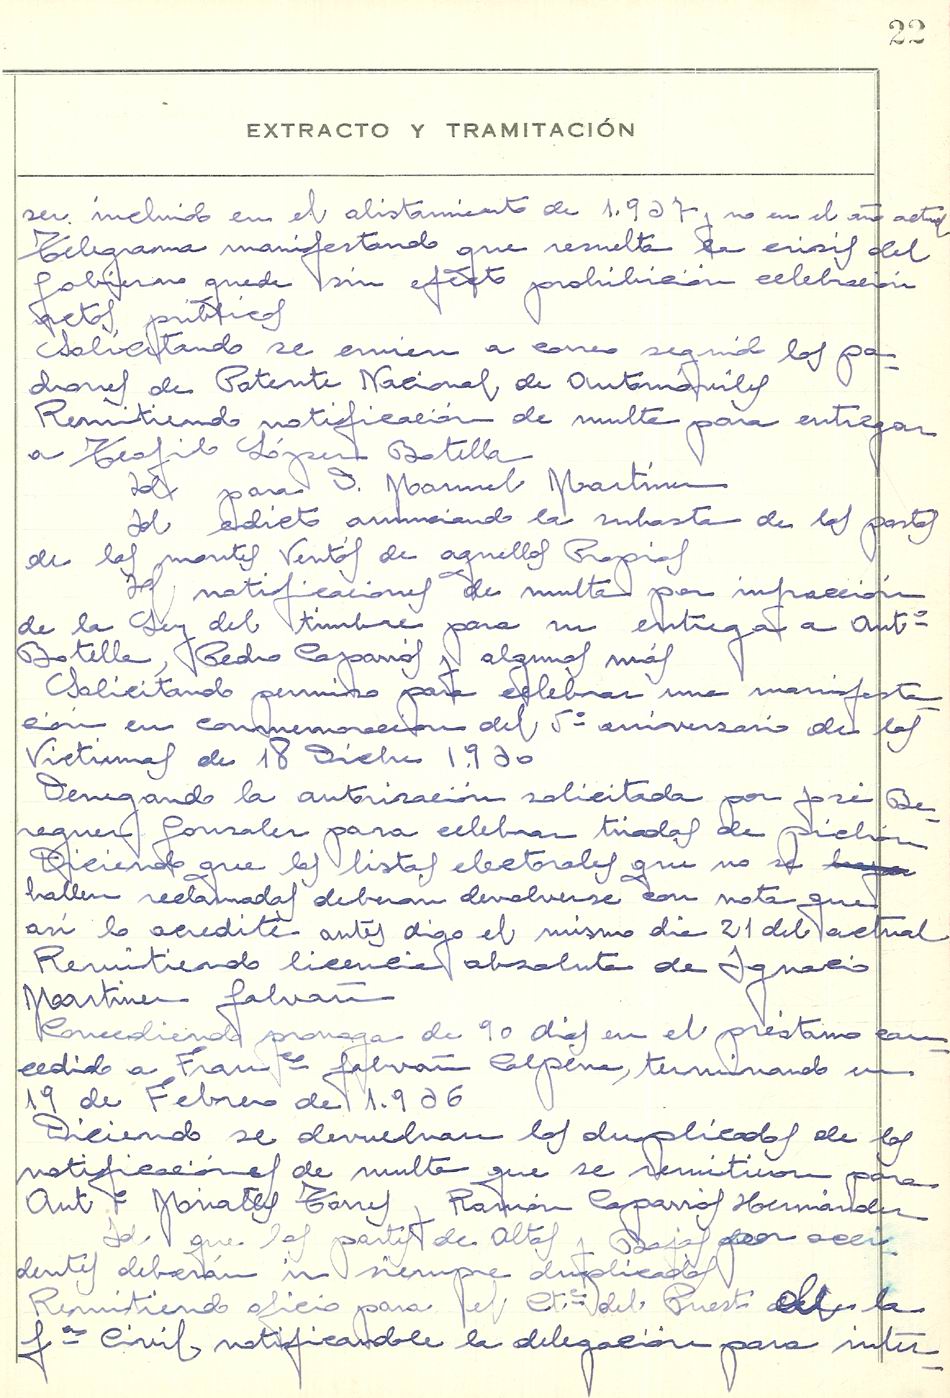 22
EXTRACTO Y TRAMITACIÓN
ser incluido en el alistamiento de 1.937 y no en el año actual
Telegrama manifestando que resuelta la crisis del
Gobierno quede sin efecto prohibición celebración
actos públicos
Solicitando se envien a correo seguid los pa-
drones de Patente Nacional de Automóviles
Remitiendo notificación de multa para entregar
a Teofilo López Botella
Id para D. Manuel Martínez
Id edicto anunciando la subasta de los pastos
de los montes Ventós de aquellos Propios
Id notificaciones de multa por infracción
de la Ley del timbre para su entrega a Antº
Botella, Pedro Caparrós y algunos más
Solicitando permiso para celebrar una manifesta-
ción en conmemoracion del 5º aniversario de las
Victimas de 18 Dicbre 1.930
Denegando la autorización solicitada por José Be-
renguer Gonzalez para celebrar tiradas de pichón
Diciendo que las listas electorales que no se haya
hallen reclamadas deberan devolverse con nota que
así lo acredite antes digo el mismo dia 21 del actual
Remitiendo licencia absoluta de Ignacio
Martinez Galvañ
Concediendo prorroga de 90 dias en el préstamo con-
cedido a Franco Galvañ Calpena, terminando en
19 de Febrero de 1.936
Diciendo se devuelvan los duplicados de las
notificaciones de multa que se remitieron para
Antº Miralles Torres y Ramón Caparrós Hernández
Id. que los partes de Altas y Bajas por acci-
dentes deberán ir siempre duplicados
Remitiendo oficio para el Cte del Puesto de la
Gª Civil notificandole la delegación para inter-